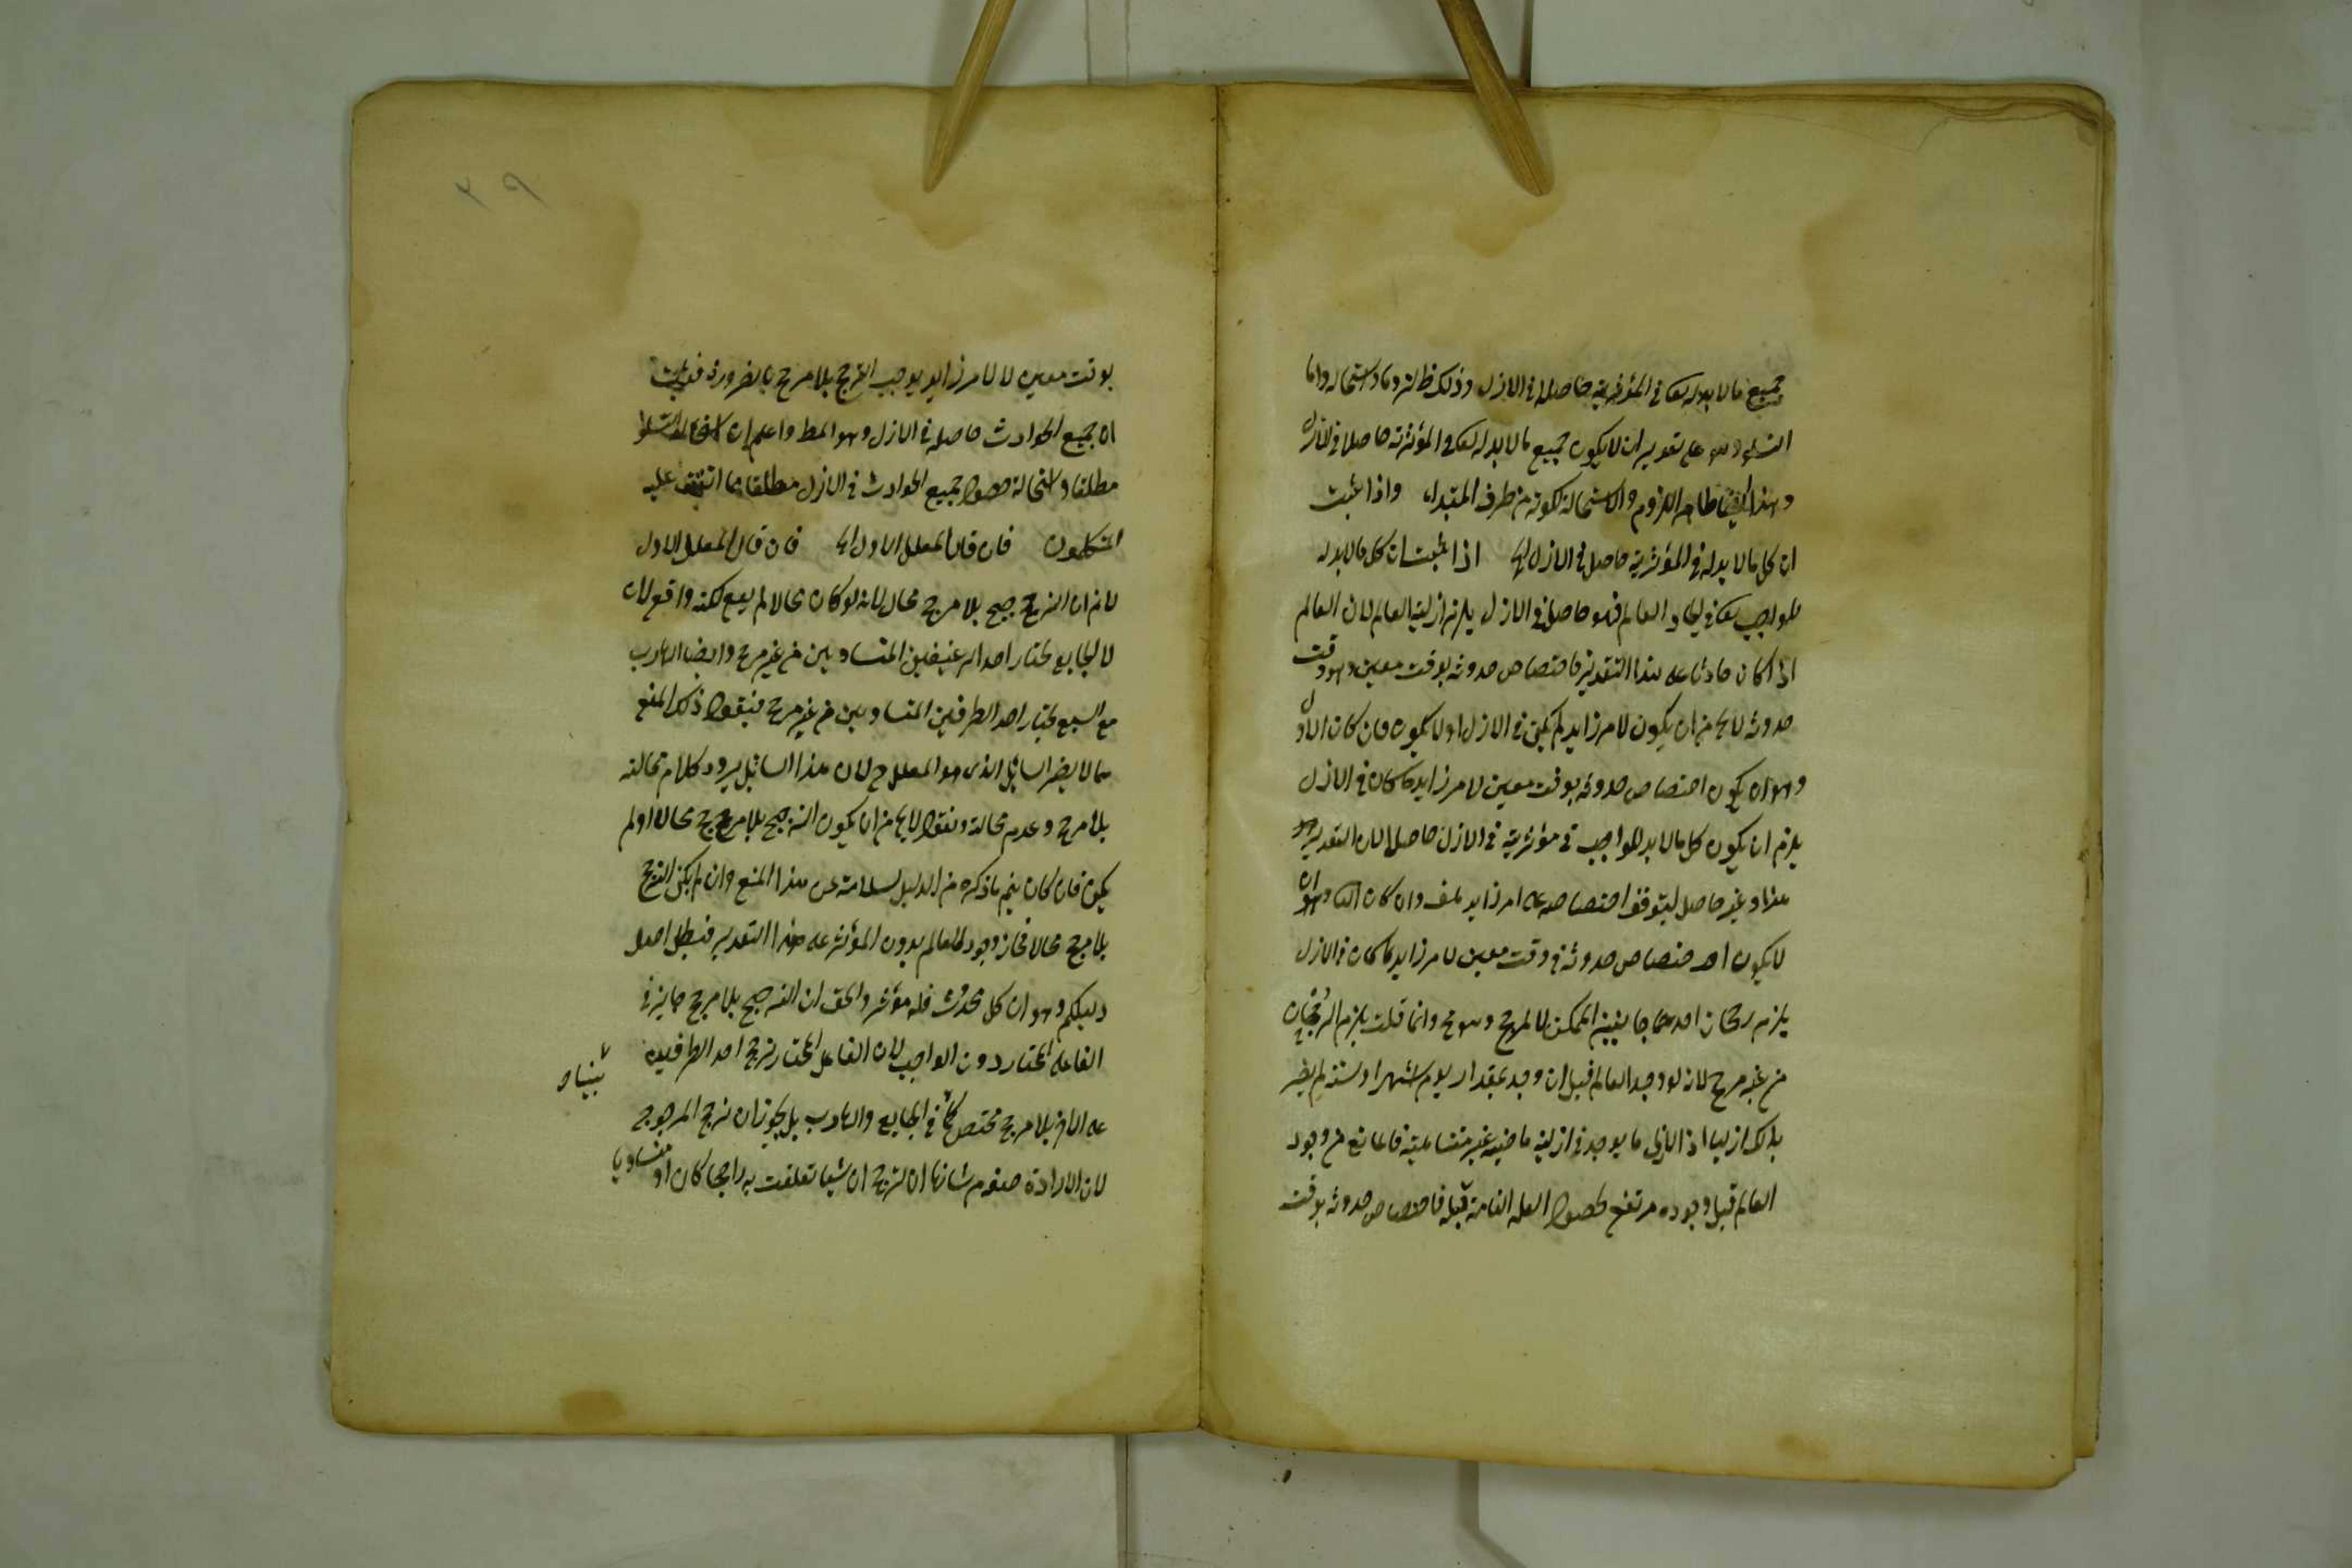 جميع ما لا بد له تعالى في المؤثرية حاصلا في الازل وذلك ظ لزوما واستحالة واما
الثانى وهو على تقدير ان لا يكون جميع ما لا بد له تعالى في المؤثرية حاصلا في الازل
وهذا ايضا ظاهر اللزوم والاستحالة لكونه من طرف المبتداء واذا ثبت
ان كل ما لا بد له في المؤثرية حاصل في الازل الخ اذا ثبت ان كل ما لا بد له
للواجب تعالى في ايجاد العالم فهو حاصل في الازل يلزم ازلية العالم لان العالم
اذا كان حادثا على هذا التقدير فاختصاص حدوثه بوقت معين وهو وقت
حدوثه لا يخ من ان يكون لامر زايد لم يكن في الازل او لا يكون فان كان الاول
وهو ان يكون اختصاص حدوثه بوقت معين لامر زايد ما كان في الازل
يلزم ان يكون كل ما لا بد للواجب في مؤثرية في الازل حاصلا لان التقدير
هذا وغير حاصل لتوقف اختصاصه على امر زايد هف وان كان الثانى وهو ان
لا يكون اختصاص حدوثه في وقت معين لامر زايد ما كان في الازل
يلزم رجحان احد جانبى الممكن لا لمرجح وهو مح وانما قلت يلزم الرجحان
من غير مرجح لانه لو وجد العالم قبل ان وجد بمقدار يوم او شهر او سنة لم يضر
بذلك ازليا اذ الازلى ما يوجد في ازلية ماضية غير متناهية فالمانع من وجود
العالم قبل وجوده مرتفع لحصول العلة التامة قبله فاختصاص حدوثه بوقت
٢٩
بوقت معين لا لامر زايد يوجب الترجح بلا مرجح بالضرورة فيثبت
ان جميع الحوادث حاصلة في الازل وهو المط واعلم ان
مطلقا واستحالة حصول جميع الحوادث في الازل مطلقا مما اتفق عليه
المتكلمون فان قال المعلل الاول الخ فان قال المعلل الاول
لا نم ان الترجيح بلا مرجح محال لانه لو كان محالا لم يقع لكنه واقع لان
لا الجايع يختار احد الرغيفين المتساويين من غير مرجح وايضا الهارب
من السبع يختار احد الطرفين المتساويين من غير مرجح فنقول ذلك المنع
مما لا يضر السائل الذى هو المعلل ح لان هذا السائل يردد كلام محالته
بلا مرجح وعدم محالته ونقول لا يخ من ان يكون الترجيح بلا مرجح محالا او لم
يكن فان كان يتم ما ذكره من الدليل لسلامته عن هذا المنع وان لم يكن الترجح
بلا مرجح محالا فجاز وجود العالم بدون المؤثر على هذا التقدير فبطل اصل
دليلكم وهو ان كل محدث فله مؤثر والحق ان الترجيح بلا مرجح جايز في
الفاعل المختار دون الواجب لان الفاعل المختار يرجح احد الطرفين
على الاخر بلا مرجح مختص كما في الجايع والهارب بل يجوز ان يرجح المرجوح
لان الارادة صفة من شانها ان ترجح اى شيئا تعلقت به راجحا كان او متساويا